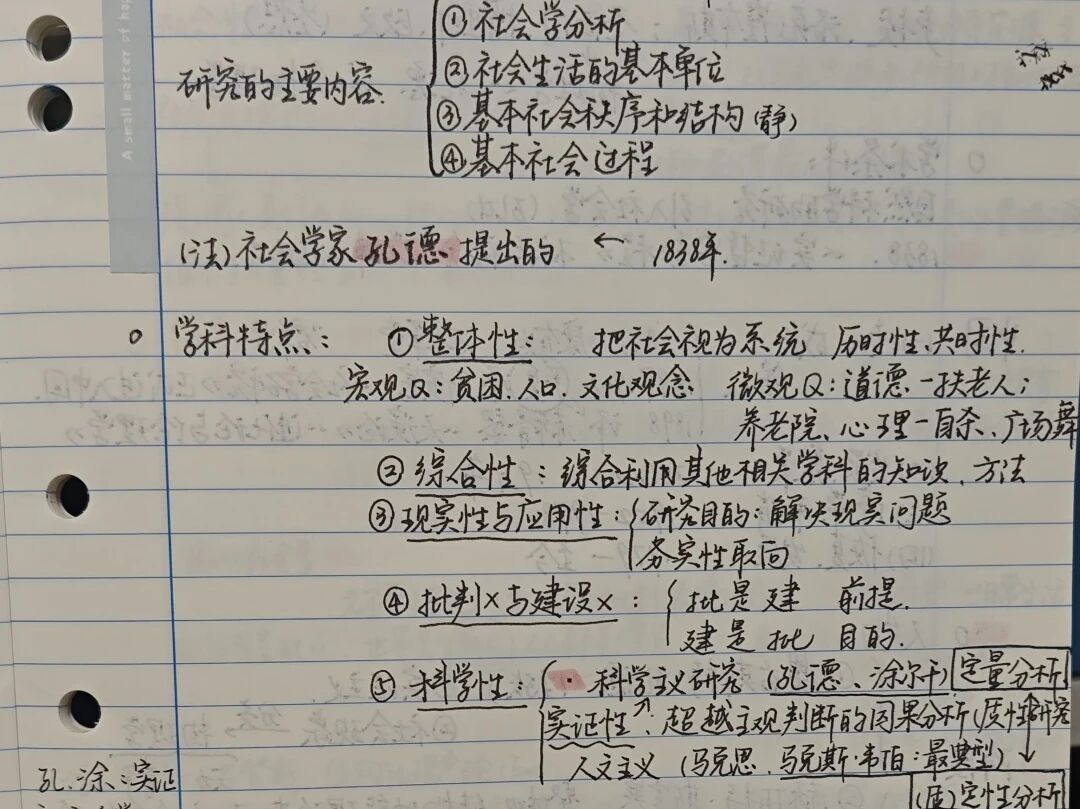 A small matter of hap
① 社会学分析
② 社会生活的基本单位
研究的主要内容.
③ 基本社会秩序和结构 (静)
④ 基本社会过程
(法) 社会学家 孔德 提出的 ← 1838年.
学科特点: ① 整体性: 把社会视为系统 历时性、共时性.
宏观Q: 贫困、人口、文化观念 微观Q: 道德—扶老人;
养老院、心理—自杀、广场舞
② 综合性: 综合利用其他相关学科的知识、方法
③ 现实性与应用性: 研究目的: 解决现实问题
务实性取向
④ 批判×与建设×: 批是建 前提.
建是批 目的.
⑤ 科学性: · 科学主义研究 (孔德、涂尔干) 定量分析
实证性: 超越主观判断的因果分析 (质性研究
人文主义 (马克思、马克斯·韦伯: 最典型)
孔.涂: 实证
(质) 定性分析